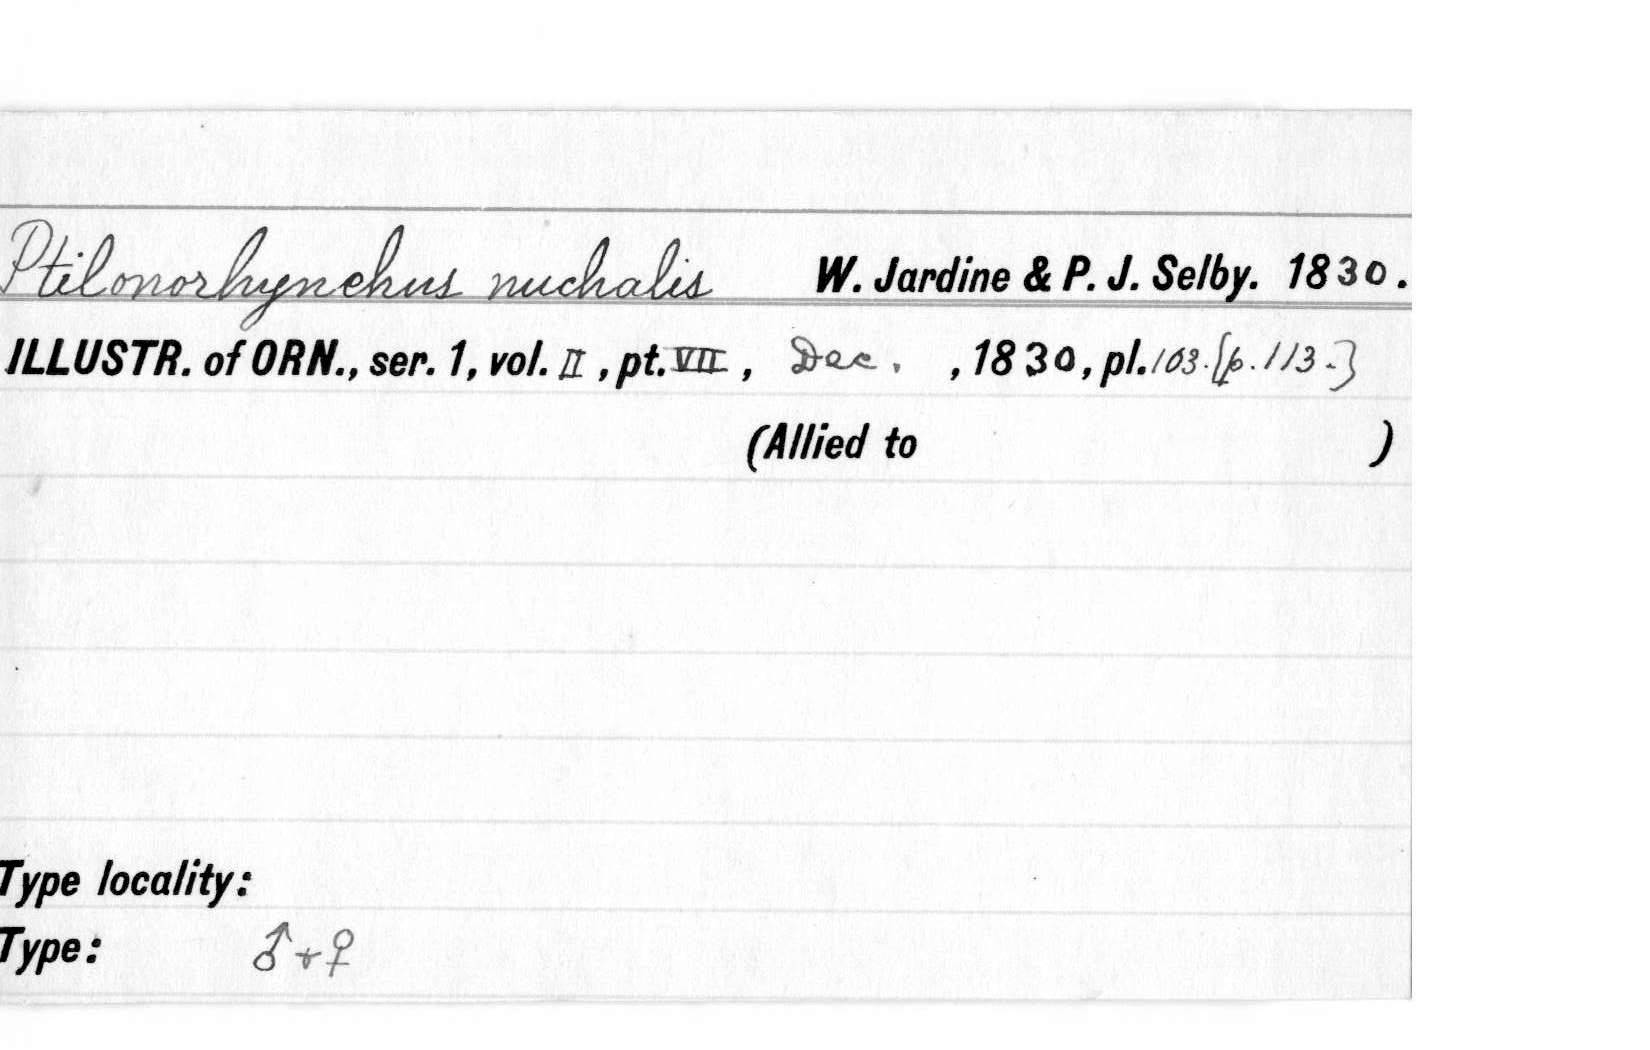 Ptilonorhynchus nuchalis W. Jardine & P. J. Selby. 1830.
ILLUSTR. of ORN., ser. 1, vol. II, pt. VII, Dec. , 1830, pl. 103. [p. 113.]
(Allied to )
Type locality:
Type: ♂ + ♀